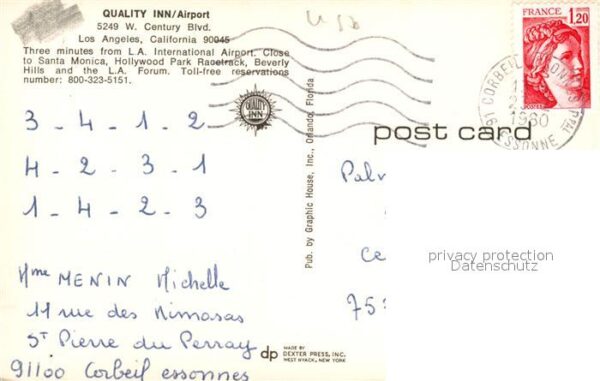 QUALITY INN/Airport
5249 W. Century Blvd.
Los Angeles, California 90045
Three minutes from L.A. International Airport. Close
to Santa Monica, Hollywood Park Racetrack, Beverly
Hills and the L.A. Forum. Toll-free reservations
number: 800-323-5151.
USA
FRANCE
1,20
POSTES
91 CORBEIL
1960
ESSONNE
QUALITY
INN
post card
Pub. by Graphic House, Inc., Orlando, Florida
3 - 4 - 1 - 2
4 - 2 - 3 - 1
1 - 4 - 2 - 3
Mme MENIN Michelle
11 rue des Mimosas
ST Pierre du Perray
91100 Corbeil essonnes
Palm
Ce
75
privacy protection
Datenschutz
dp
MADE BY
DEXTER PRESS, INC.
WEST NYACK, NEW YORK